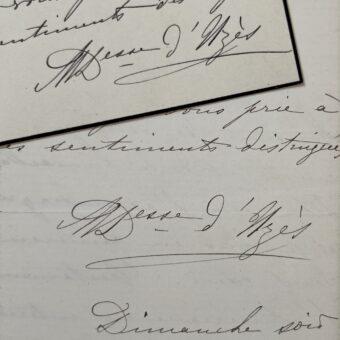 sentiments
MDesse d'Uzès
vous prie à
sentiments distingués
MDesse d'Uzès
Dimanche soir